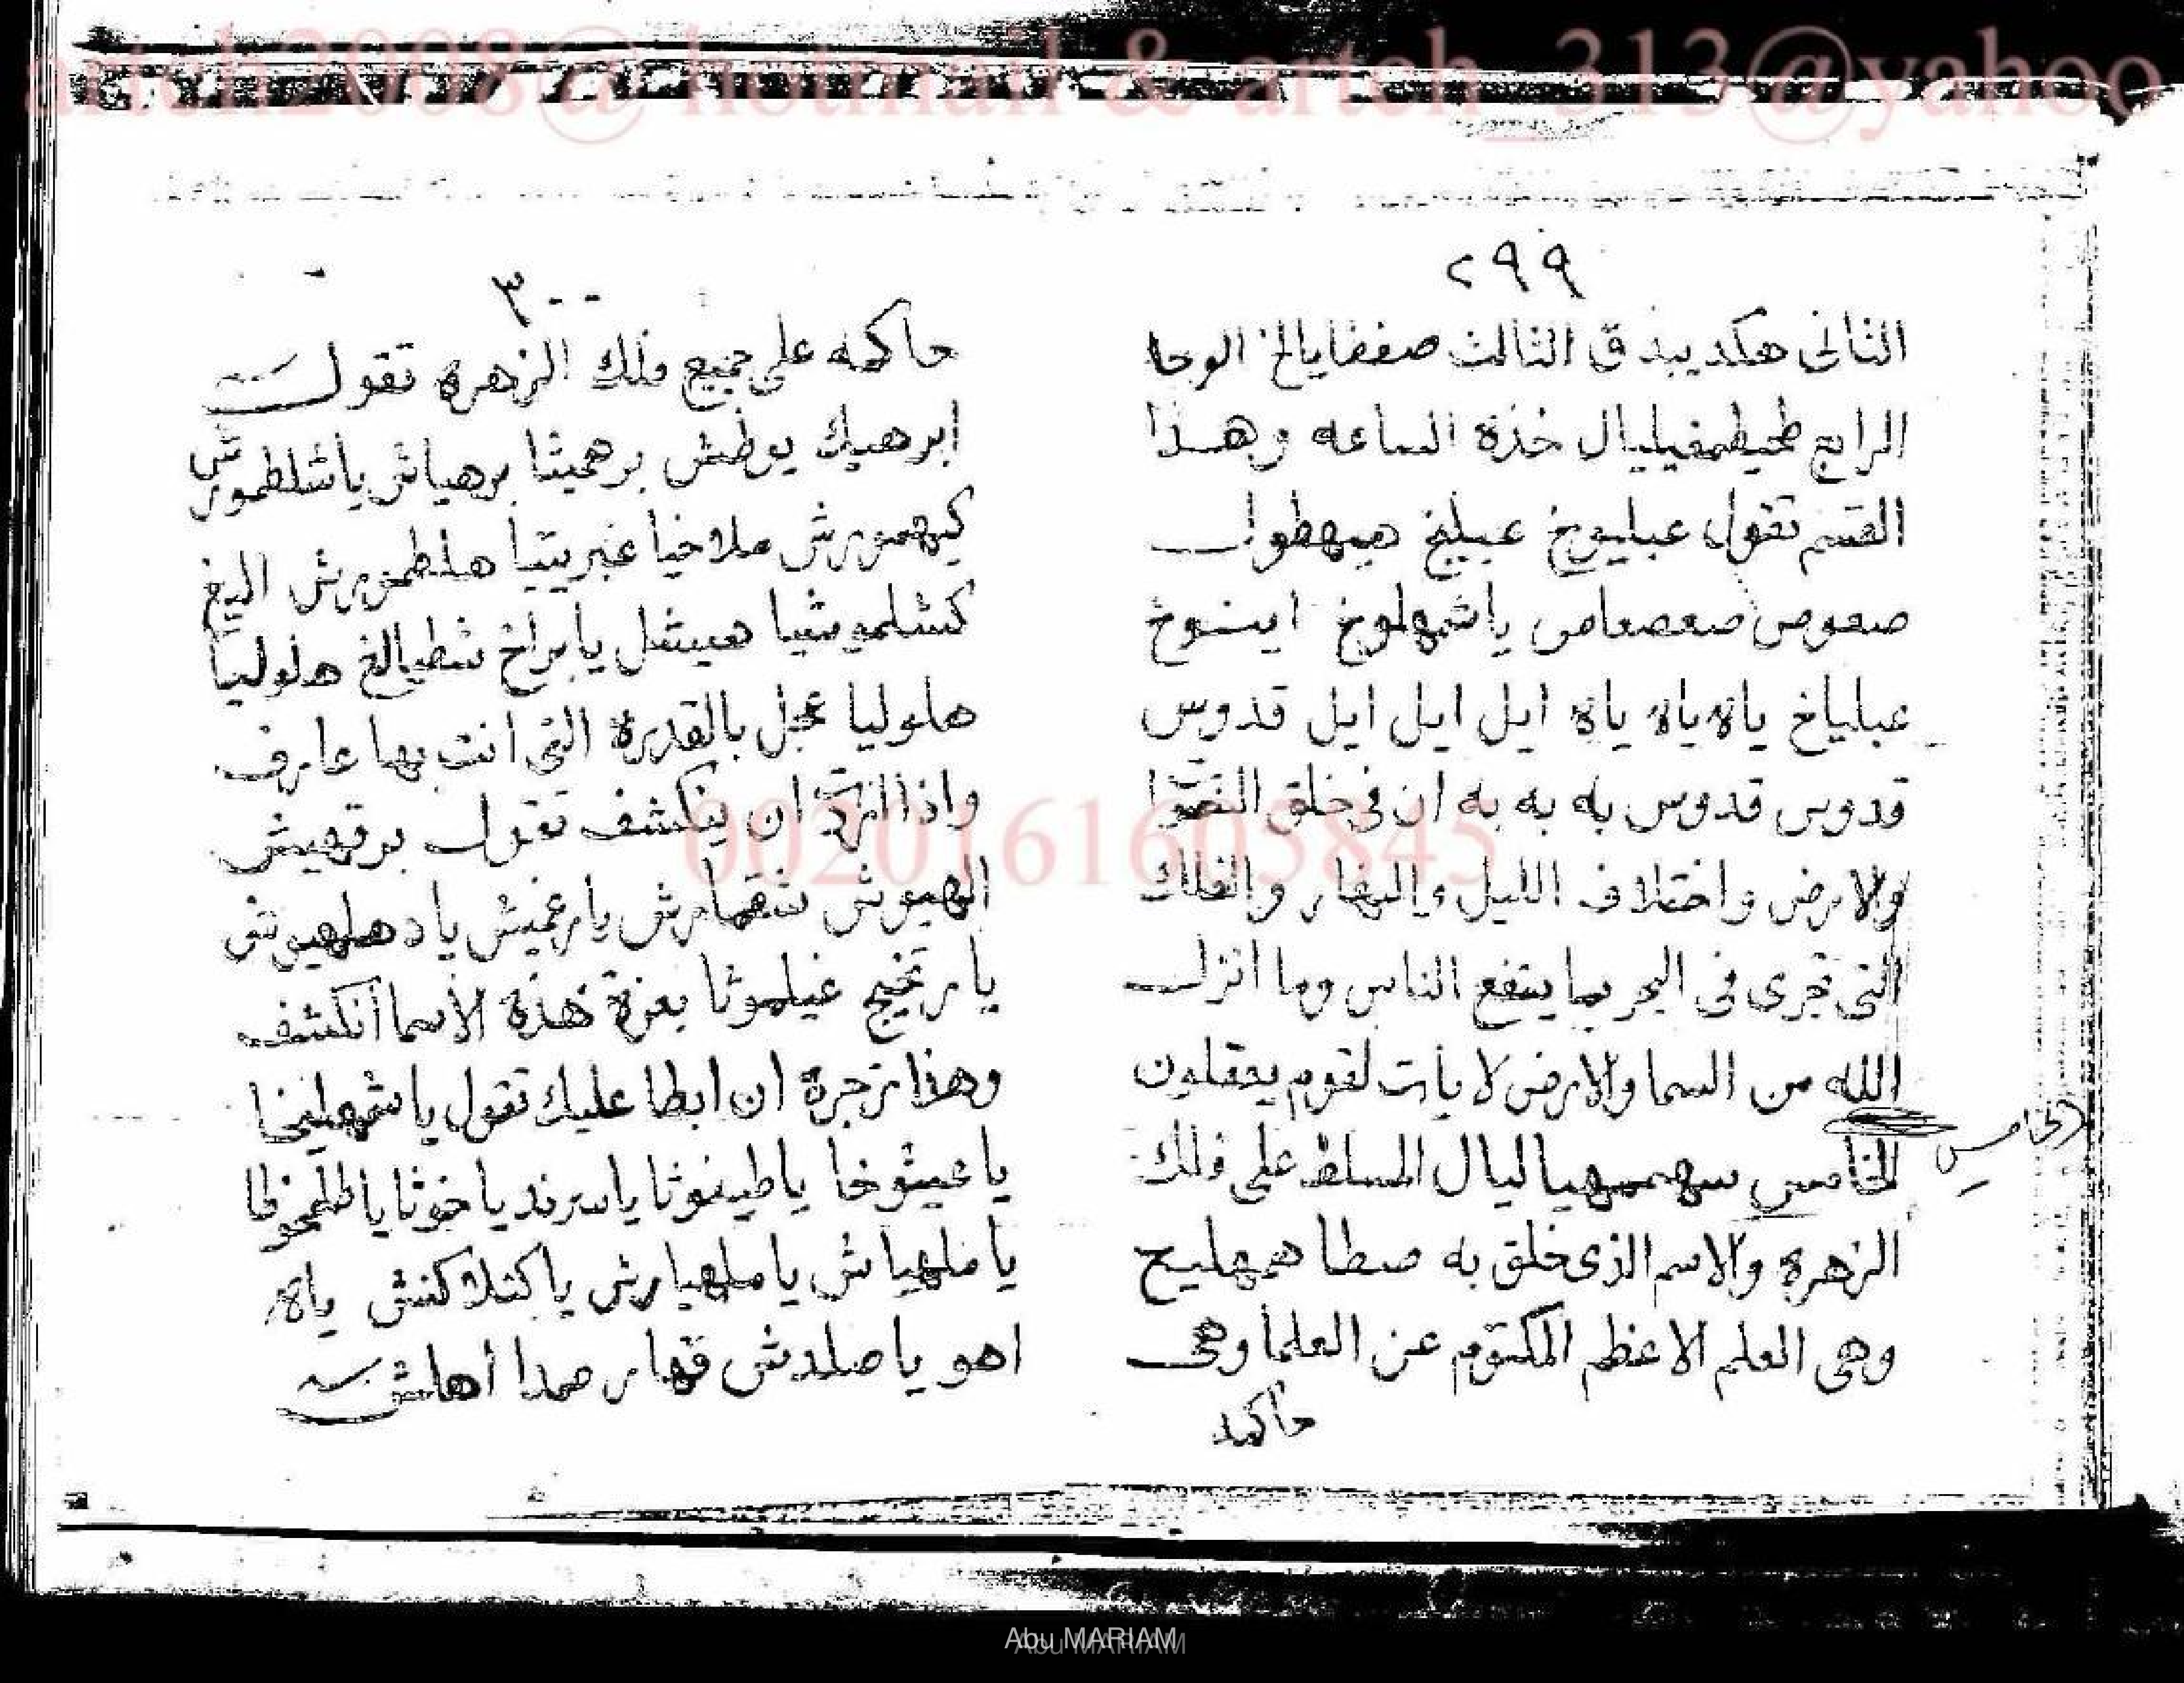 arteh2008@hotmail & arteh_313@yahoo
٢٩٩
الثانى هكد يبدق الثالث صففايالخ الوحا
الرابع طحيطمغيليال خذه الساعه وهذا
القسم تقول عبليوخ عبيلخ هيهطول
صعوص صعصعاص ياشمهلوخ اينوخ
عبلياخ ياه ياه ياه ايل ايل ايل قدوس
قدوس قدوس به به به ان فى خلق السموا
والارض واختلاف الليل والنهار والفلك
التى تجرى فى البحر بما ينفع الناس وما انزل
الله من السما والارض لايات لقوم يعقلون
الخامس
الخامس سهسهياليال المسلط على فلك
الزهره والاسم الذى خلق به صطا همهليج
وهى العلم الاعظم المكتوم عن العلما وهى
حاكمه
٣٠٠
حاكمه على جميع فلك الزهره تقول
ابرهيك يوطش برهميثا برهياش ياشلطمورش
كيهمورش ملاخيا غبريثيا هلطمورش اليغ
كشلموشيا هيشل يابراخ شطيالخ هلوليا
هلوليا عجل بالقدرة التى انت بها عارف
واذا اردت ان ينكشف تقول برقهيش
الهيوش شقمارش يارغميش يادهلهيوش
يا رتخيج غيلموثا بعزة هذه الأسما أنكشف
وهذا زجره ان ابطا عليك تقول ياشمهليخا
ياعيثوخا ياطيفوثا ياسرند ياخوثا
ياملهياش ياملهيارش ياكتلاكنش ياه
اهو ياصلدش قهار صمدا اهلش
0020161603845
Abu MARIAM